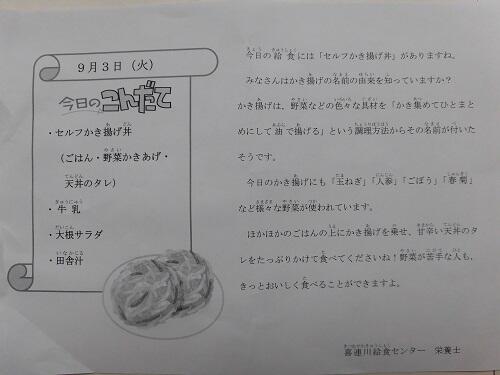 9月3日（火）
今日のこんだて
・セルフかき揚げ丼
（ごはん・野菜かきあげ・
天丼のタレ）
・牛乳
・大根サラダ
・田舎汁
今日の給食には「セルフかき揚げ丼」がありますね。
みなさんはかき揚げの名前の由来を知っていますか？
かき揚げは、野菜などの色々な具材を「かき集めてひとまとめにして油で揚げる」という調理方法からその名前が付いたそうです。
今日のかき揚げにも「玉ねぎ」「人参」「ごぼう」「春菊」
など様々な野菜が使われています。
ほかほかのごはんの上にかき揚げを乗せ、甘辛い天丼のタ
レをたっぷりかけて食べてくださいね！野菜が苦手な人も、
きっとおいしく食べることができますよ。
喜連川給食センター　栄養士